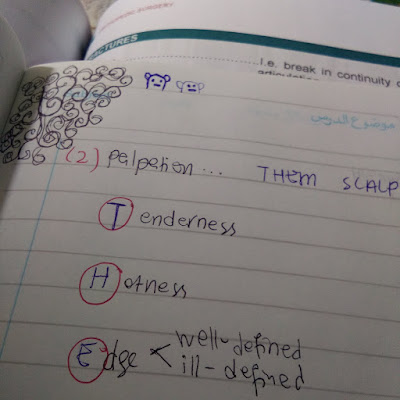 ORTHOPEDIC SURGERY
LECTURES
I.e. break in continuity
موضوع الدرس
(2) palpation ... THEM SCALP
Tenderness
Hotness
Edge < well-defined
ill-defined